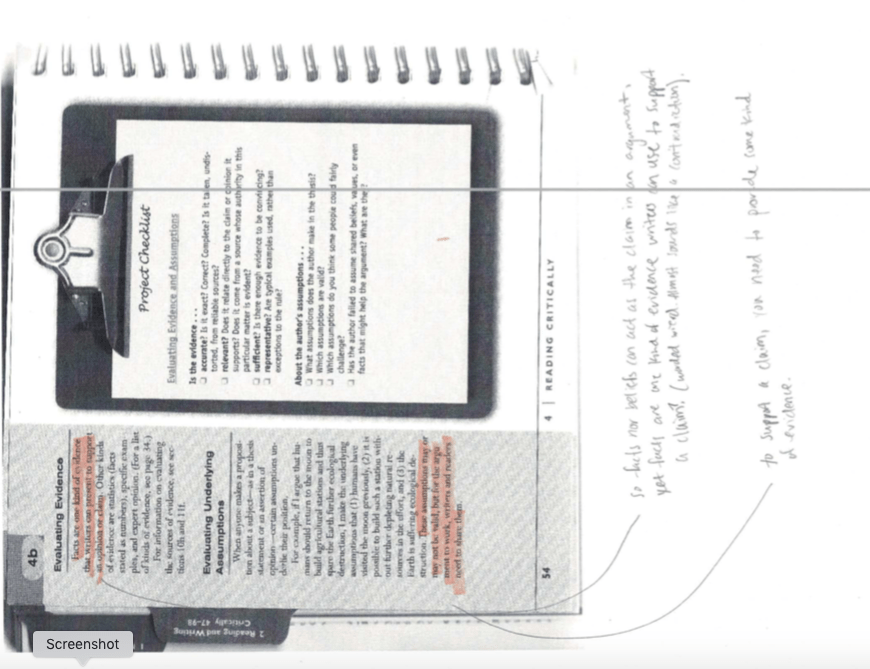 4b
Evaluating Evidence
Facts are one kind of evidence
that writers can present to support
an opinion or claim. Other kinds
of evidence are statistics (facts
stated as numbers), specific exam-
ples, and expert opinion. (For a list
of kinds of evidence, see page 34.)
For information on evaluating
the sources of evidence, see sec-
tions
Evaluating Underlying
Assumptions
When anyone makes a proposi-
tion about a subject—as in a thesis
statement or an assertion of
opinion—certain assumptions un-
derlie their position.
For example, if I argue that hu-
mans should return to the moon to
build agricultural stations and thus
spare the Earth further ecological
destruction, I make the underlying
assumptions that (1) humans have
visited the moon previously, (2) it is
possible to build such a station with-
out further depleting natural re-
sources in the effort, and (3) the
Earth is suffering ecological de-
struction. These assumptions may or
may not be valid, but for the argu
ment to work, writers and readers
need to share them.
Project Checklist
Evaluating Evidence and Assumptions
Is the evidence . . .
accurate? Is it exact? Correct? Complete? Is it taken, undis-
torted, from reliable sources?
relevant? Does it relate directly to the claim or opinion it
supports? Does it come from a source whose authority in this
particular matter is evident?
sufficient? Is there enough evidence to be convincing?
representative? Are typical examples used, rather than
exceptions to the rule?
About the author's assumptions . . .
What assumptions does the author make in the thesis?
Which assumptions are valid?
Which assumptions do you think some people could fairly
challenge?
Has the author failed to assume shared beliefs, values, or even
facts that might help the argument? What are they?
54
4 | READING CRITICALLY
2 Reading and Writing
Critically 47–98
so facts nor beliefs can act as the claim in an argument,
yet facts are one kind of evidence writers can use to support
a claim? (worded wierd almost sounds like a contradiction).
to support a claim, you need to provide some kind
of evidence.
Screenshot